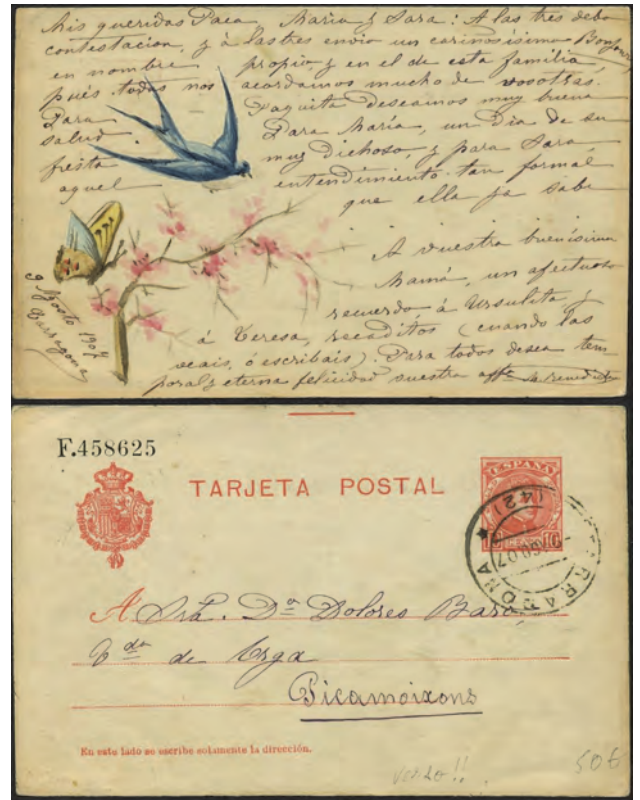 Mis queridas Paca María y Sara: A las tres debo
contestacion, y á las tres envio un cariñosísimo
en nombre propio y en el de esta familia,
pués todos nos acordamos mucho de vosotras.
Para Paquita deseamos muy buena
salud. Para María, un Dia de su
fiesta muy Dichoso, y para Sara,
aquel entendimiento tan formal
que ella ya sabe
A vuestra buenísima
Mamá, un afectuoso
recuerdo, á Ursulita, y
á Teresa, recaditos (cuando las
veais, ó escribais). Para todos desea tem-
poral y eterna felicidad vuestra affᵐᵃ
9 Agosto 1907
Tarragona
F.458625
TARJETA POSTAL
ESPAÑA
10 CENTS 10
TARRAGONA
(42)
AGO 07
A Srª. Dª Dolores Baró,
Vdª de Orga
Picamoixons
En este lado se escribe solamente la dirección.
50€